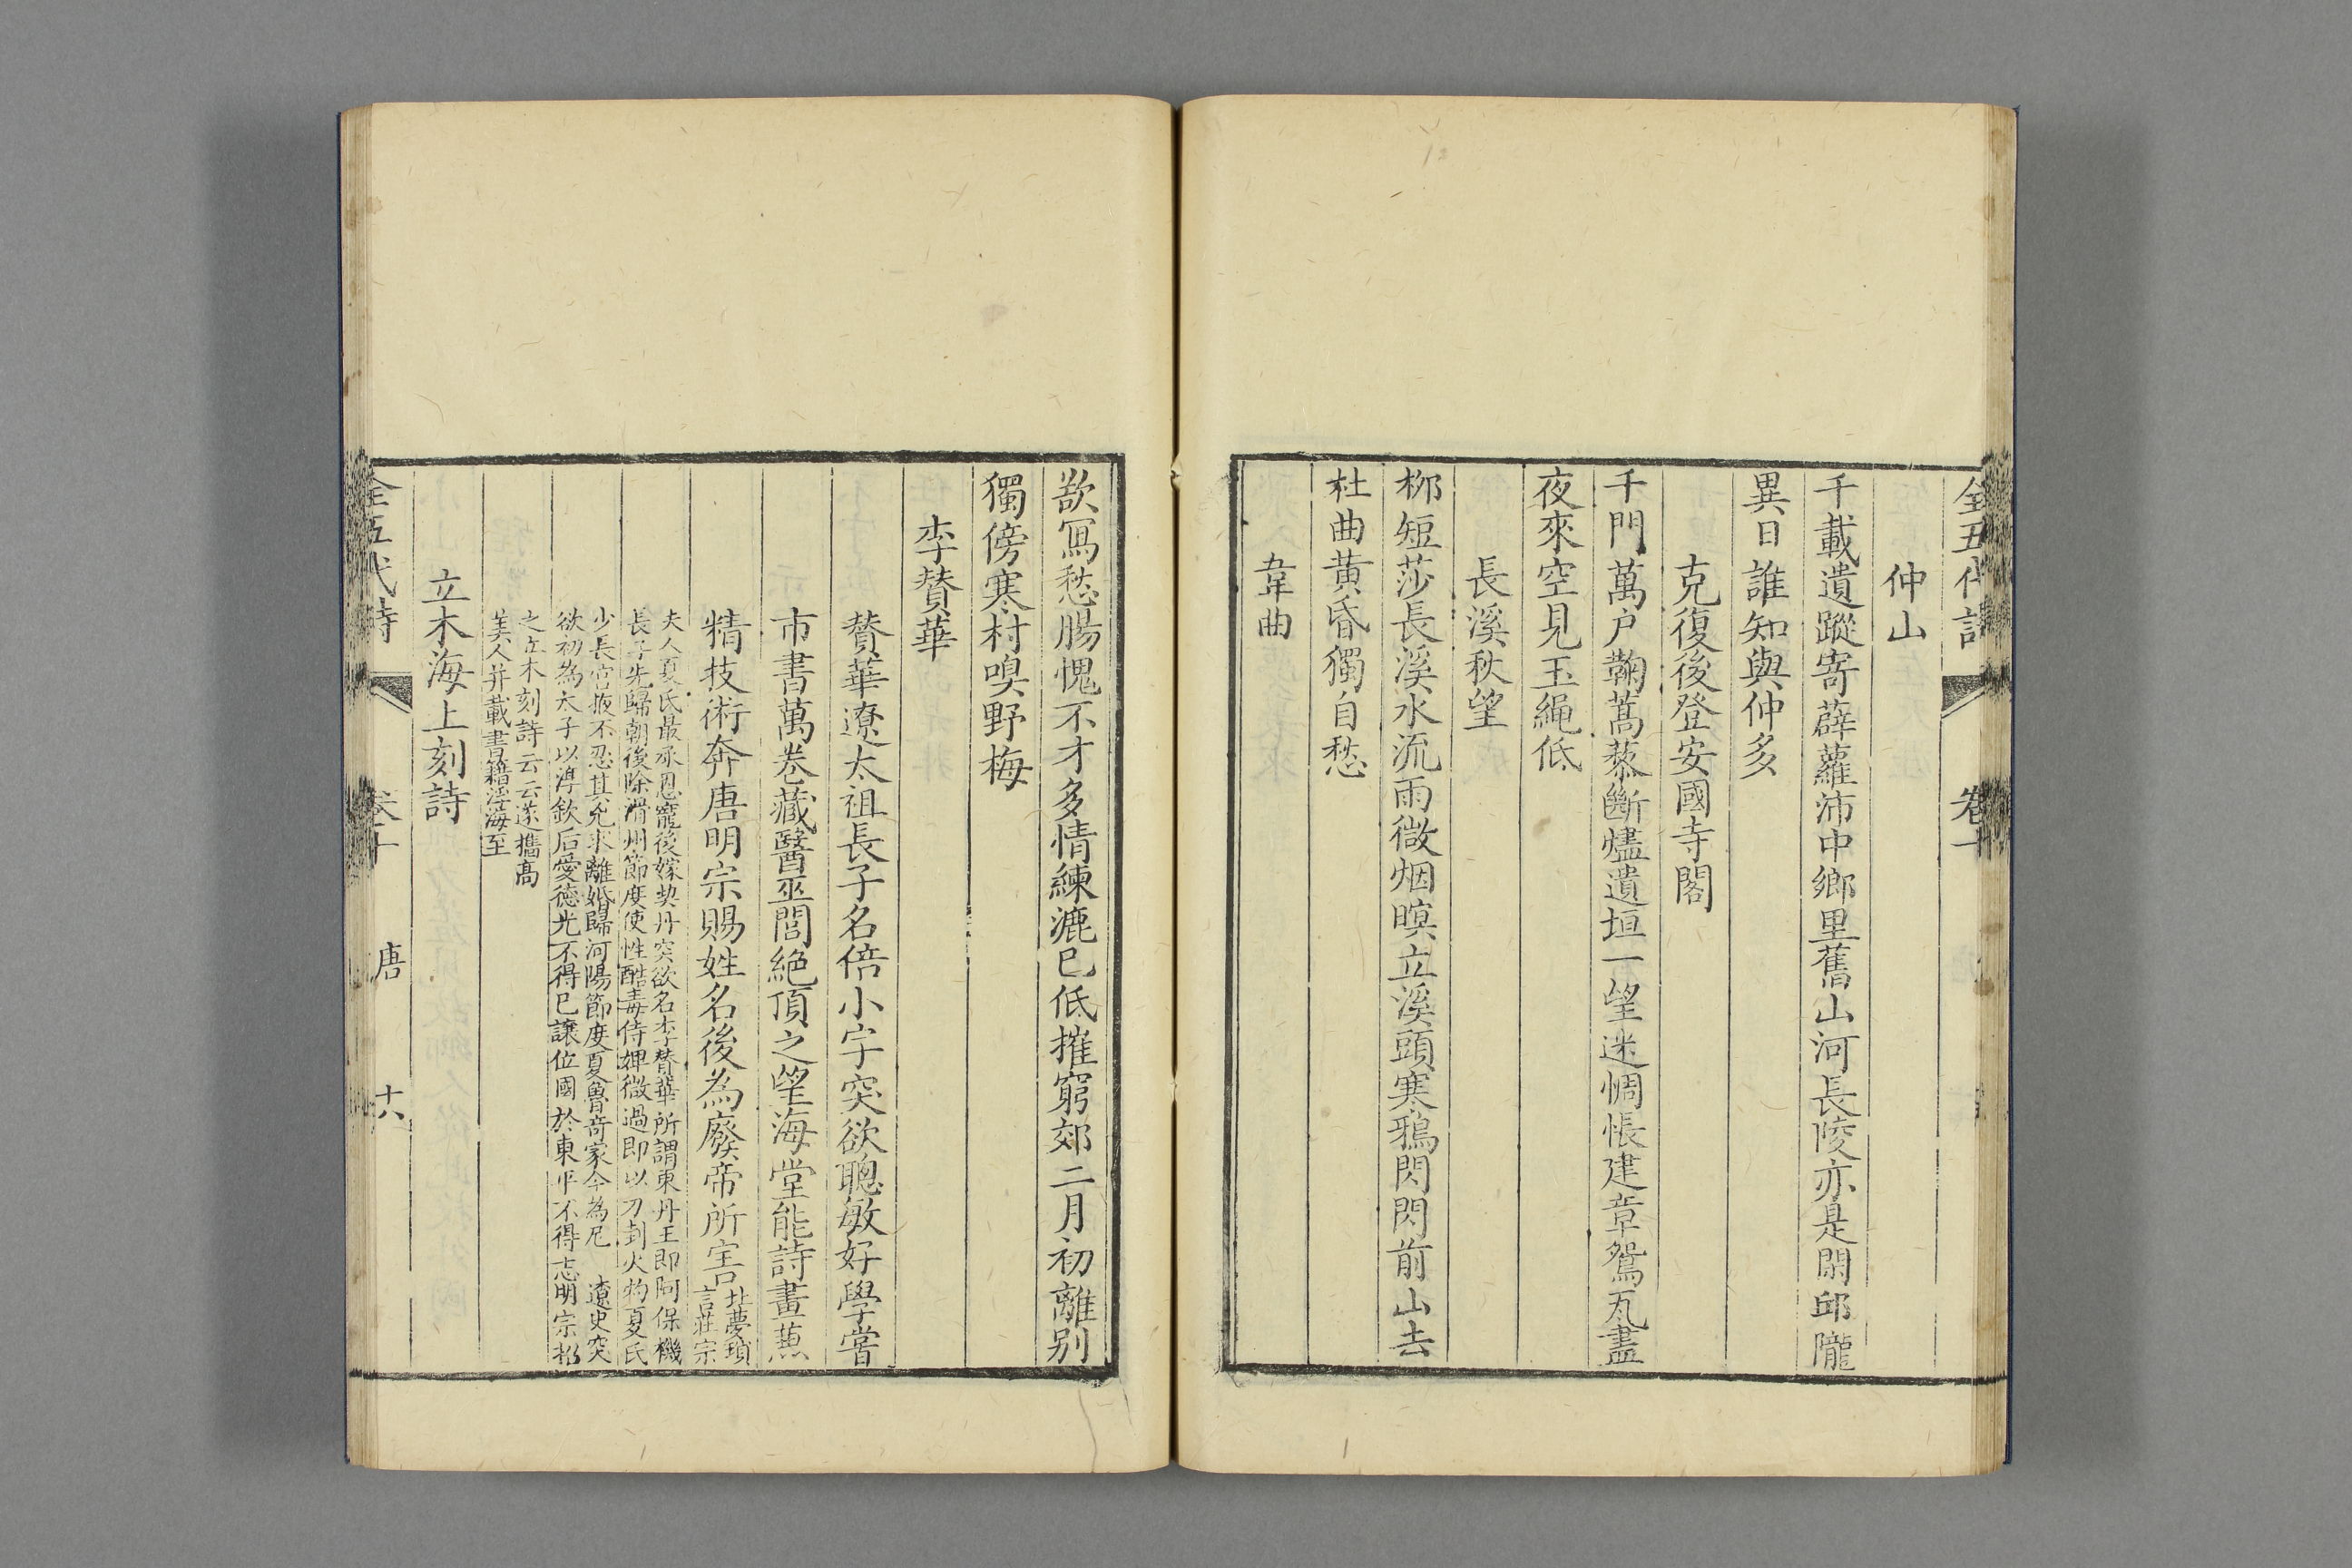 全五代詩
卷十
仲山
千載遺蹤寄薜蘿沛中鄉里舊山河長陵亦是閑邱隴
異日誰知與仲多
克復後登安國寺閣
千門萬戶鞠蒿藜斷燼遺垣一望迷惆悵建章鴛瓦盡
夜來空見玉繩低
長溪秋望
柳短莎長溪水流雨微烟暝立溪頭寒鴉閃閃前山去
杜曲黃昏獨自愁
韋曲
欲寫愁腸愧不才多情練漉已低摧窮郊二月初離別
獨傍寒村嗅野梅
李贊華
贊華遼太祖長子名倍小字突欲聰敏好學嘗
市書萬卷藏醫巫閭絶頂之望海堂能詩畫蕉
精技術奔唐明宗賜姓名後為廢帝所害北夢瑣
言莊宗
夫人夏氏最承恩寵後嫁契丹突欲名李贊華所謂東丹王即阿保機
長子先歸朝後除滑州節度使性酷毒侍婢微過即以刀刲火灼夏氏
少長宮掖不忍其兇求離婚歸河陽節度夏魯奇家今為尼 遼史突
欲初為太子以淳欽后愛德光不得已讓位國於東平不得志明宗招
之立木刻詩云云遂攜高
美人并載書籍浮海至
立木海上刻詩
全五代詩
卷十
唐
十六